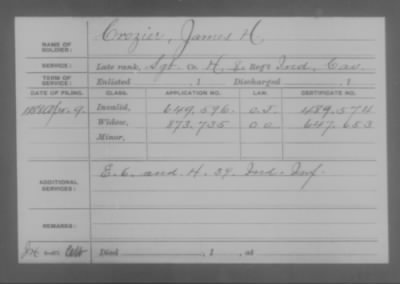 Crozier, James H.
NAME OF SOLDIER:
SERVICE: Late rank, Sgt. Co. H, 8 Reg't Ind. Cav.
TERM OF SERVICE: Enlisted , 1 Discharged , 1
DATE OF FILING. CLASS. APPLICATION NO. LAW. CERTIFICATE NO.
Apr. 9. Invalid, 649.596. 489.574
Widow, 873.735 647.653
Minor,
ADDITIONAL SERVICES: E. 6. and H. 39. Ind. Inf.
REMARKS:
Died , 1 , at